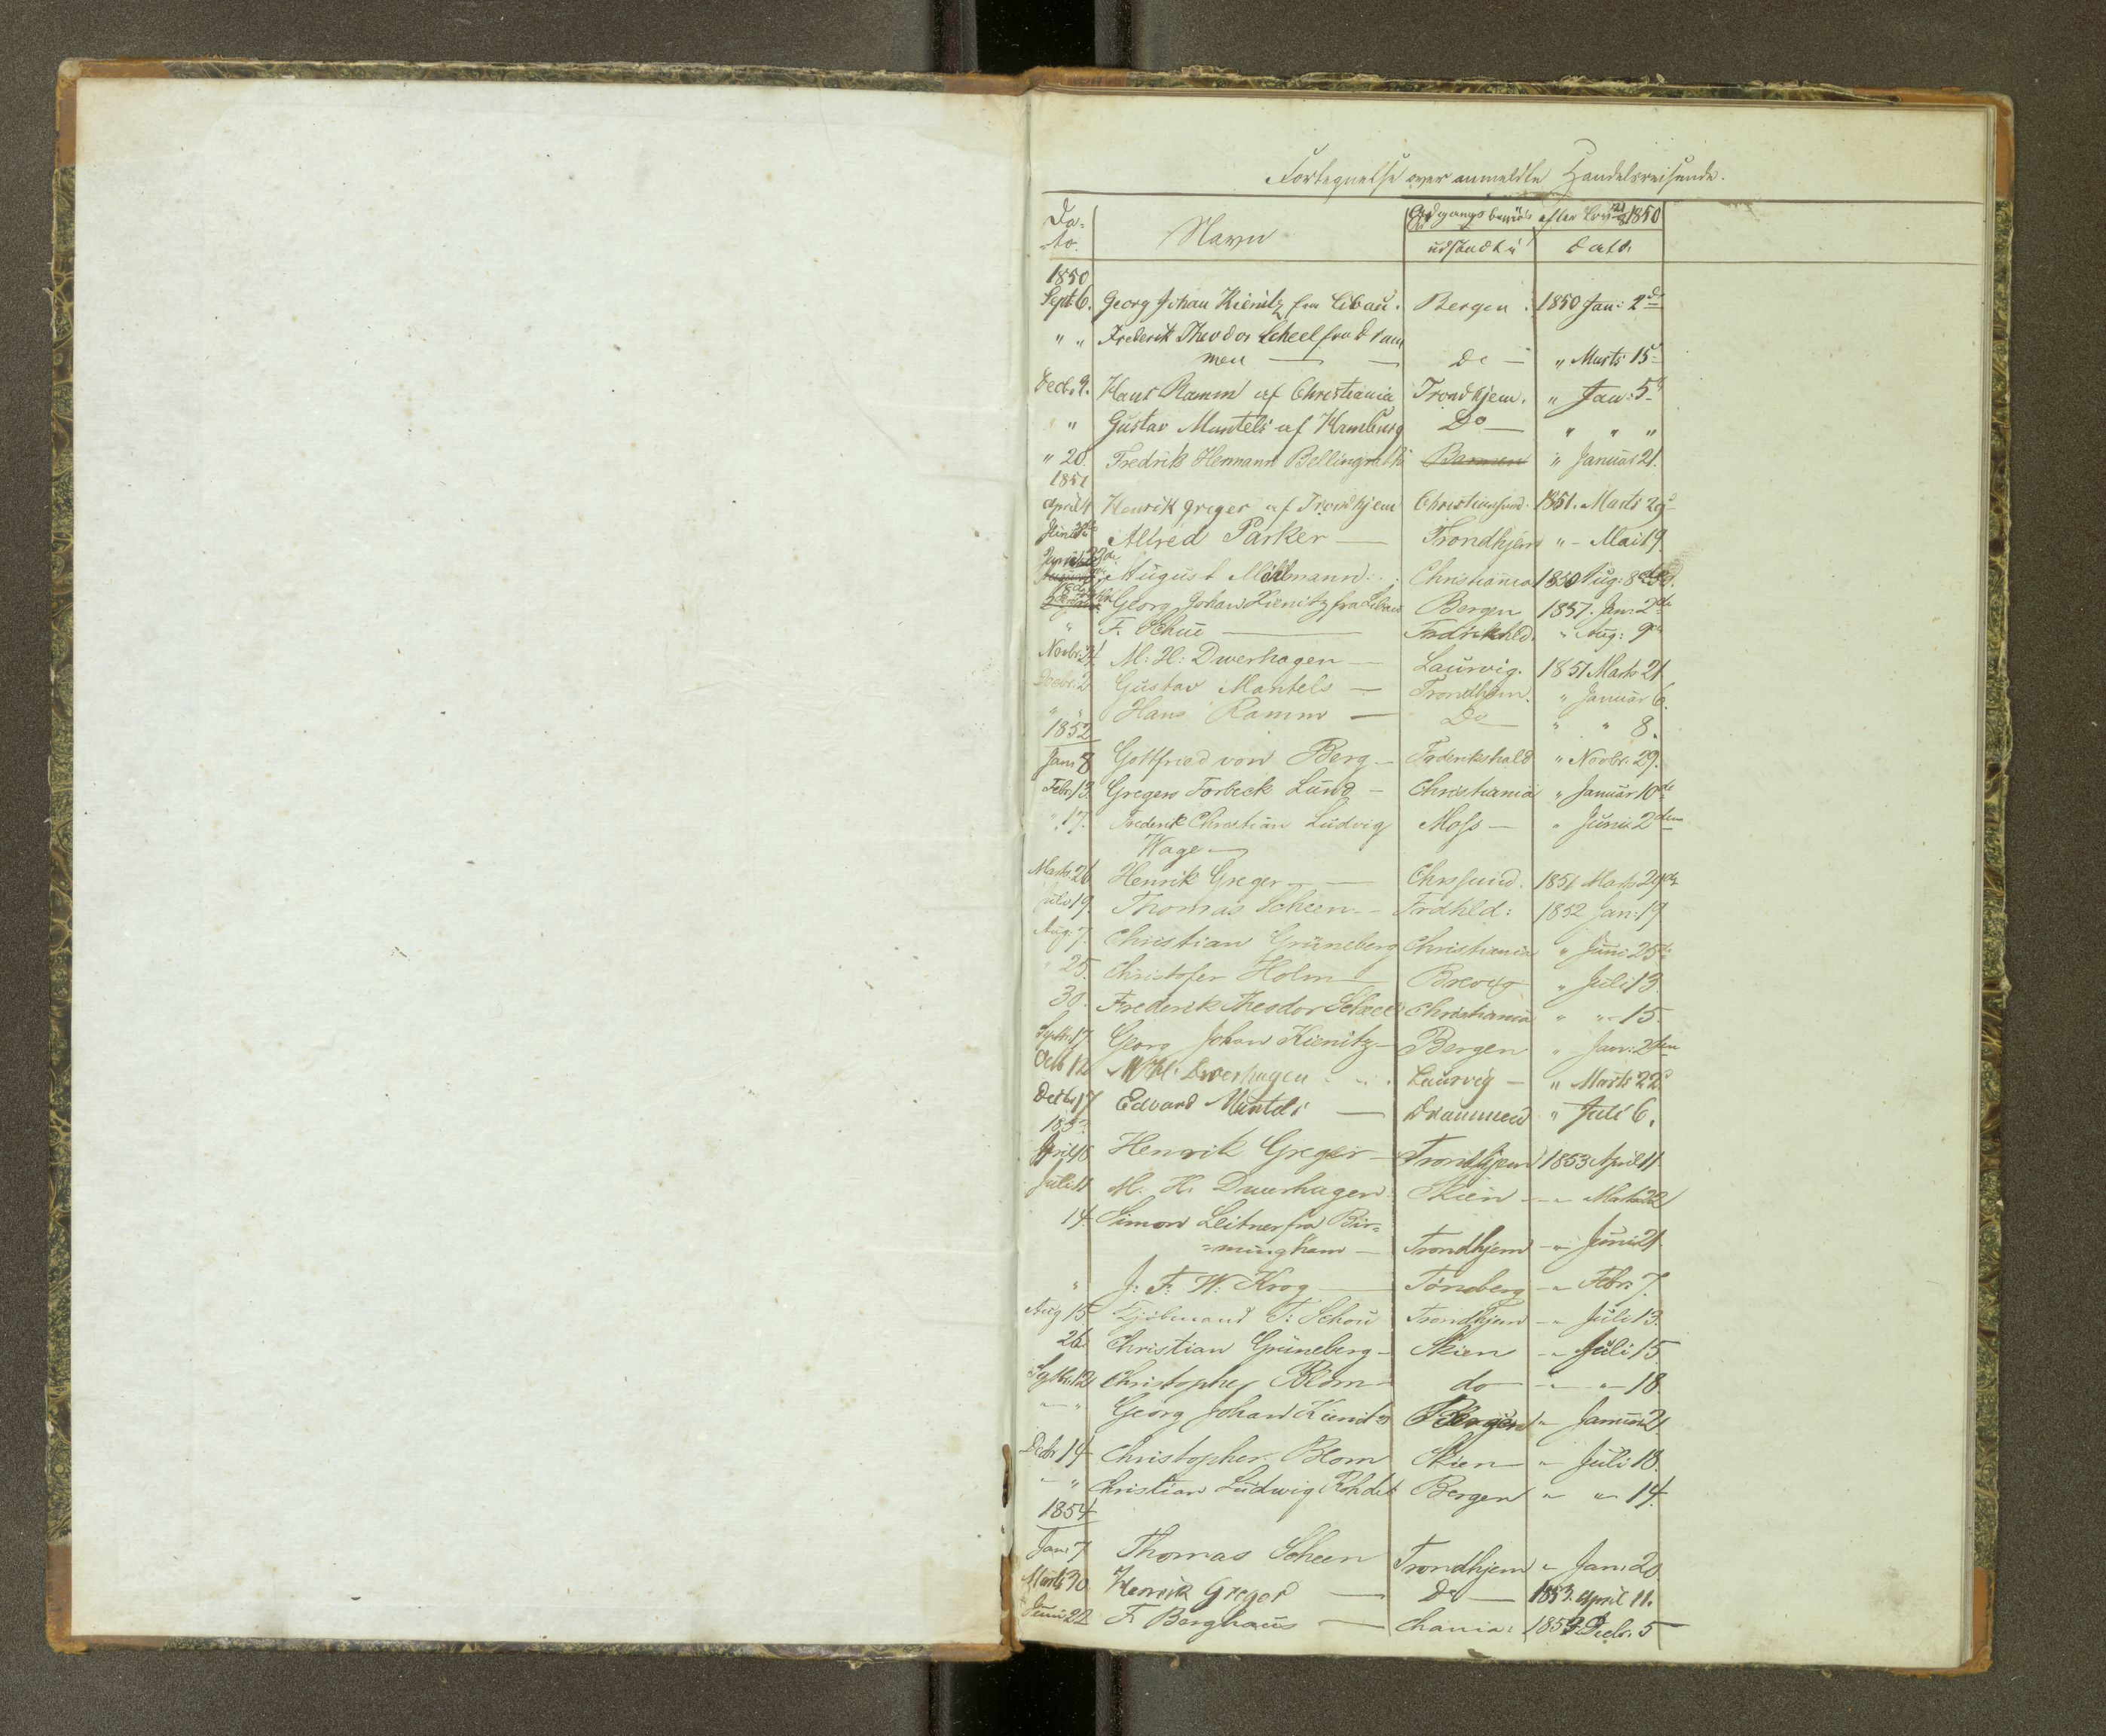 Fortegnelse over anmeldte Handelsreisende.
Da- Navn Adgangsbeviis efter Lov 12/8 1850
to. udstædt i dato
1850
Sept. 6. Georg Johan Kienitz fra Libau. Bergen. 1850 Jan: 2de
" " Frederik Theodor Scheel fra Dram
men — — Do — " Marts 15
Decbr. 9. Hans Ramm af Christiania Trondhjem. " Jan: 5
" Gustav Mantels af Hamburg Do — " " "
" 20. Fredrik Hermann Bellingrath Barmen " Januar 21.
1851
April 4 Henrik Greger af Trondhjem Christiansund. 1851. Marts 29
Alfred Parker — Trondhjem " - Mai 19.
August Christiania 1850 Aug: 8
Georg Johan Kienitz fra Libau Bergen 1851. Jan 2de
" F. Schue — Fredrikshld. " Aug: 9
Novbr. 24. M: H: Dwerhagen — Laurvig. 1851 Marts 21
Decbr. 2 Gustav Mantels — Trondhjem. " Januar 6.
" " Hans Ramm — Do — " " 8.
1852
Jan: 8 Gottfried von Berg — Frederikshald " Novbr. 29.
Febr. 13. Gregers Forbeck Lund — Christiania " Januar 10de
" 17. Frederik Christian Ludvig Moss — " Juni 2den
Wage —
Marts 26 Henrik Greger — Chrsund. 1851 Marts 29de
Juli 19. Thomas Scheen — Frdhld: 1852 Jan: 19
Aug. 7. Christian Grüneberg Christiania " Juni 25de
" 25. Christofer Holm — Brevig " Juli 13.
30. Frederik Theodor Scheel Christiania " " - 15.
Septbr. 17 Georg Johan Kienitz — Bergen " Jan: 2den
Octb 12 M H: Dwerhagen . . Laurvig — " Marts 22
Decbr 17 Edvard Mantels — Drammen " Juli 6.
1853
April 18 Henrik Greger — Trondhjem 1853 April 11
Juli 11 M. H. Dwerhagen Skien — " Marts 22
14 Simon Leitner fra Bir=
=mingham — Trondhjem — " Juni 21.
" J: F: W: Krog — Tönsberg — " Febr. 7.
Aug 15 Kjöbmand T: Schou Trondhjem — " Juli 13.
26 Christian Grüneberg — Skien — " Juli 15.
Septbr. 12 Christopher Blom — do — " — " - 18.
" — " Georg Johan Kienitz Bergen " Januar 2
Decbr 14 Christopher Blom Skien — " Juli 18.
" " Christian Ludwig Rohdes Bergen " " 14
1854
Jan: 7 Thomas Scheen Trondhjem " Jan: 20
Marts 30 Henrik Greger — Do — 1853. April 11.
Juni 22 F. Berghaus — Chania: Decbr. 5